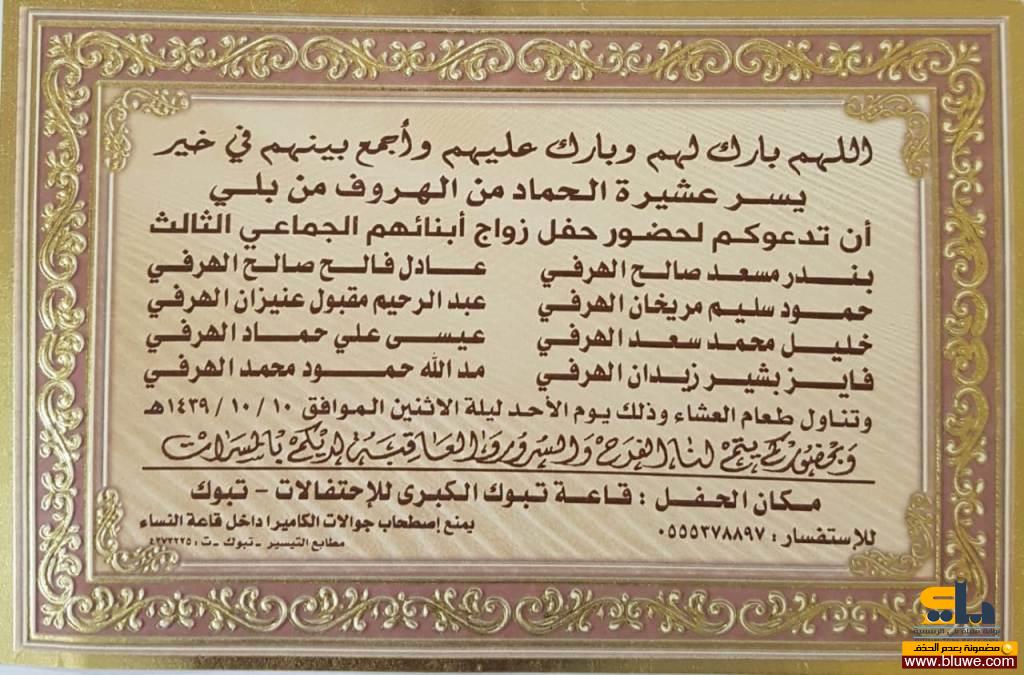 اللهم بارك لهم وبارك عليهم وأجمع بينهم في خير
يسر عشيرة الحماد من الهروف من بلي
أن تدعوكم لحضور حفل زواج أبنائهم الجماعي الثالث
بندر مسعد صالح الهرفي عادل فالح صالح الهرفي
حمود سليم مريخان الهرفي عبد الرحيم مقبول عنيزان الهرفي
خليل محمد سعد الهرفي عيسى علي حماد الهرفي
فايز بشير زيدان الهرفي مد الله حمود محمد الهرفي
وتناول طعام العشاء وذلك يوم الأحد ليلة الاثنين الموافق ١٠ / ١٠ / ١٤٣٩هـ
وبحضوركم يتم لنا الفرح والسرور والعاقبة لديكم بالمسرات
مكان الحفل : قاعة تبوك الكبرى للإحتفالات - تبوك
للإستفسار : ٠٥٥٥٣٧٨٨٩٧ يمنع إصطحاب جوالات الكاميرا داخل قاعة النساء
مطابع التيسير - تبوك - ت : ٤٢٧٣٢٢٥
بلي
مضمونة بعدم الحذف
www.bluwe.com